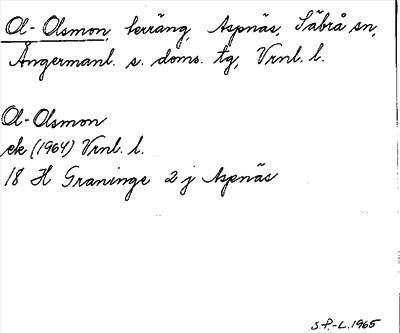 Ol-Olsmon, terräng, Aspnäs, Säbrå sn,
Ångermanl. s. doms. tg, Vrnl. l.
Ol-Olsmon
ek (1964) Vrnl. l.
18 H Graninge 2 j Aspnäs
S.P.-L. 1965